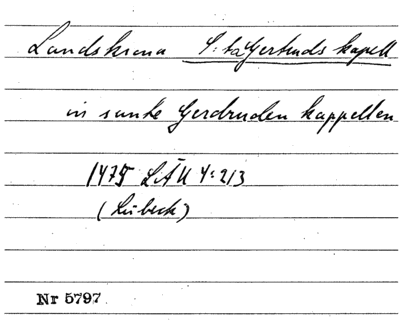 Landskrona S:ta Gertruds kapell
in sunte Gerdruden kappellen
1475 LÄU 4:213
(Lübeck)
Nr 5797